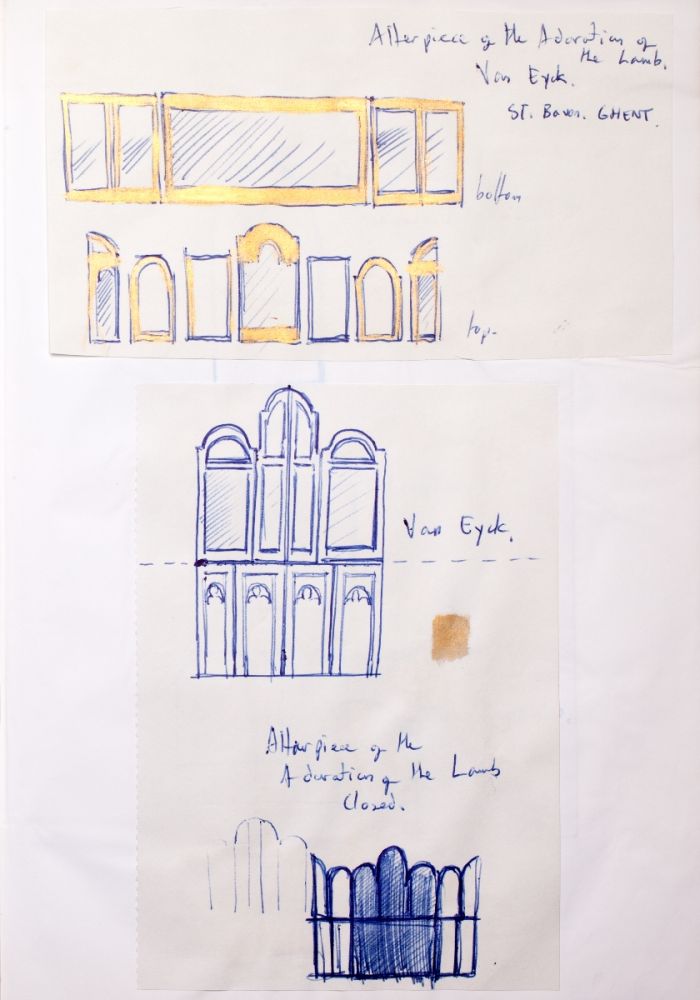 Alterpiece of the Adoration of
the Lamb.
Van Eyck.
ST. Bavon. GHENT.
bottom
top-
Van Eyck.
Alterpiece of the
Adoration of the Lamb
Closed.